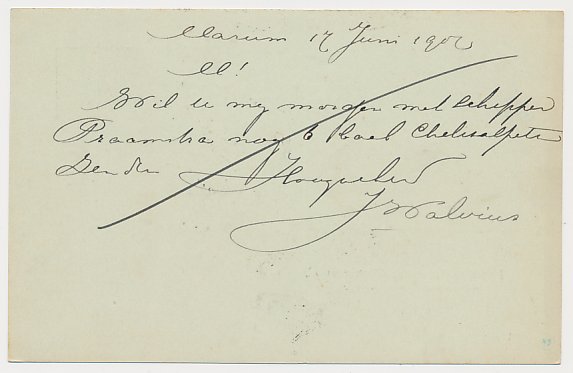 Marum 17 Juni 1902
M!
Wil u my morgen met schipper
Praamstra nog 6 baal Chilisalpeter
zenden Hoogachtend
J Walvius